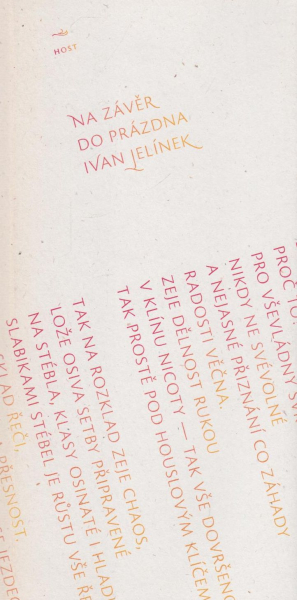 HOST
NA ZÁVĚR
DO PRÁZDNA
IVAN JELÍNEK
PROČ TO
PRO VŠEVLÁDNÝ
NIKDY NE SVÉVOLNÉ
A NEJASNÉ PŘIZNÁNÍ CO ZÁHADY
RADOSTI VĚČNA.
ZEJE DĚLNOST RUKOU
V KLÍNU NICOTY — TAK VŠE DOVRŠENO
TAK PROSTĚ POD HOUSLOVÝM KLÍČEM
TAK NA ROZKLAD ZEJE CHAOS,
LOŽE OSIVA SETBY PŘIPRAVENÉ
NA STÉBLA, KLASY OSINATÉ I HLAD
SLABIKAMI STÉBEL JE RŮSTU VŠE ŘE
SKLAD ŘEČI.
A PŘESNOST.
JEZDEC